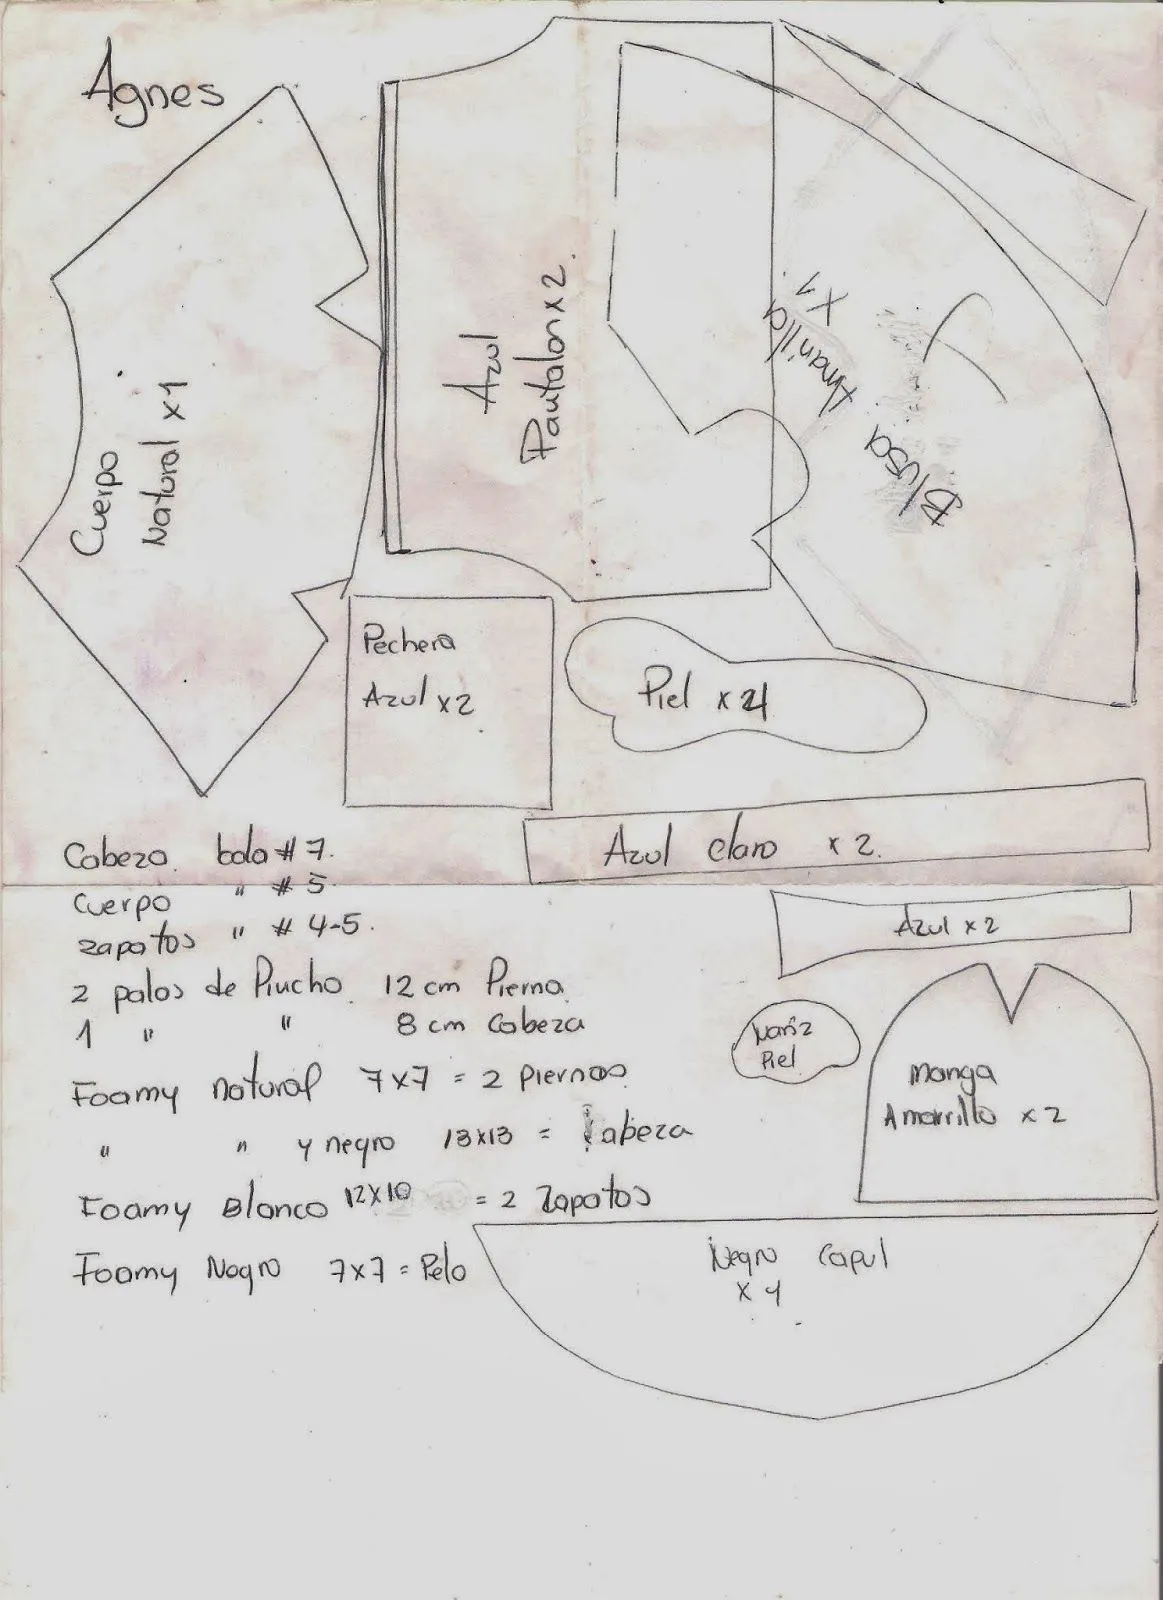 Agnes
Cuerpo
Natural x1
Azul
Pantalon x 2.
Blusa
Amarilla
x1.
Pechera
Azul x2
Piel x 4
Azul claro x 2.
Azul x 2
Nariz
Piel
Manga
Amarrillo x 2
Negro Capul
x 4
Cabeza bola # 7.
Cuerpo " # 5.
zapatos " # 4-5.
2 palos de Pincho 12 cm Pierna
1 " " 8 cm Cabeza
Foamy natural 7x7 = 2 piernas
" " y negro 13x13 = Cabeza
Foamy Blanco 12x10 = 2 Zapatos
Foamy Negro 7x7 = Pelo